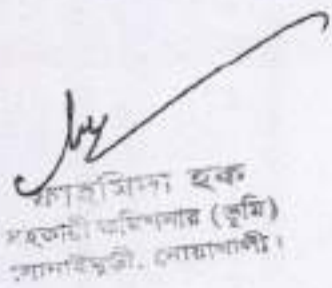 ফারহিদা হক
সহকারী কমিশনার (ভূমি)
সোনাইমুড়ী, নোয়াখালী।